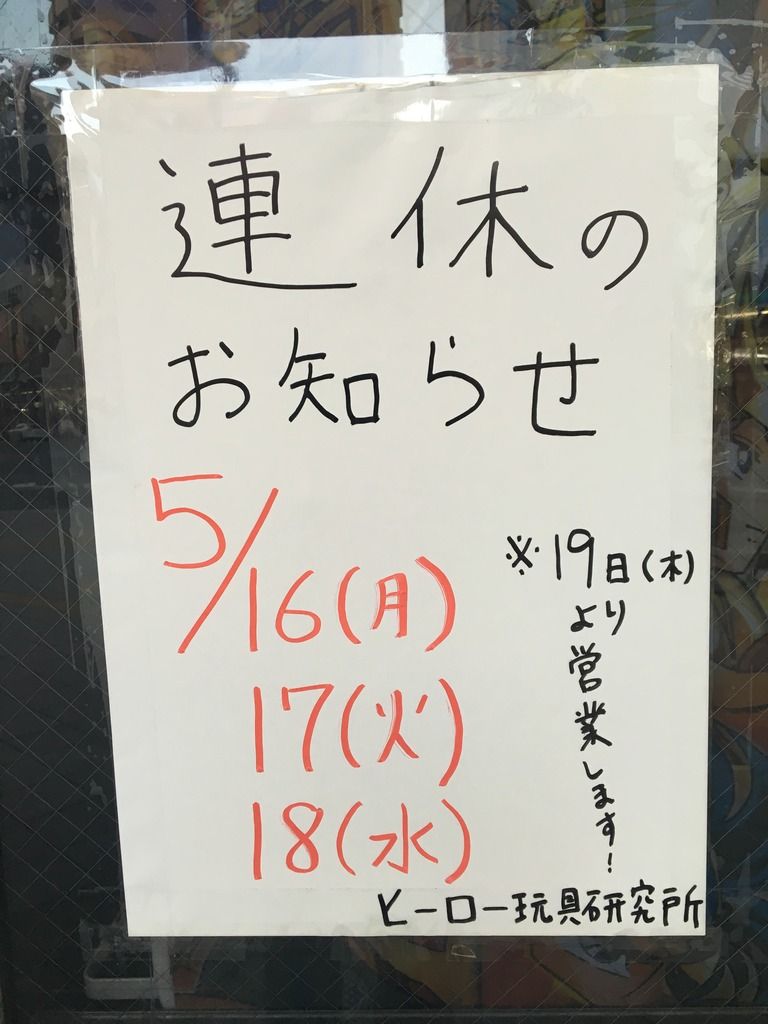 連休の
お知らせ
5/16(月)
17(火)
18(水)
※19日(木)
より営業します!
ヒーロー玩具研究所